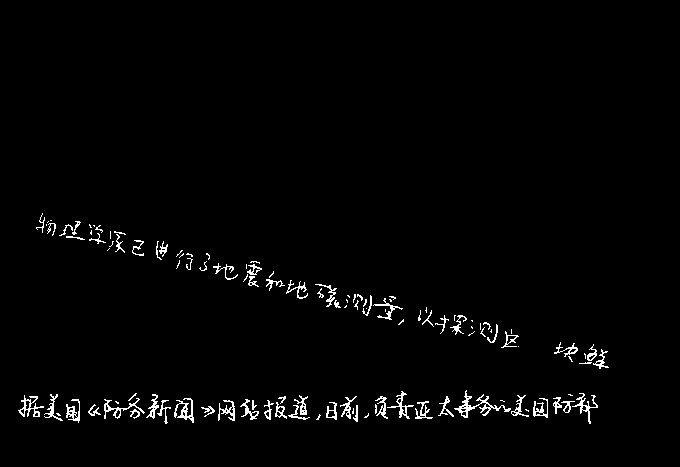 物理学家已进行了地震和地磁测量,以探测这 块鲜
据美国《防务新闻》网站报道,日前,负责亚太事务的美国防部